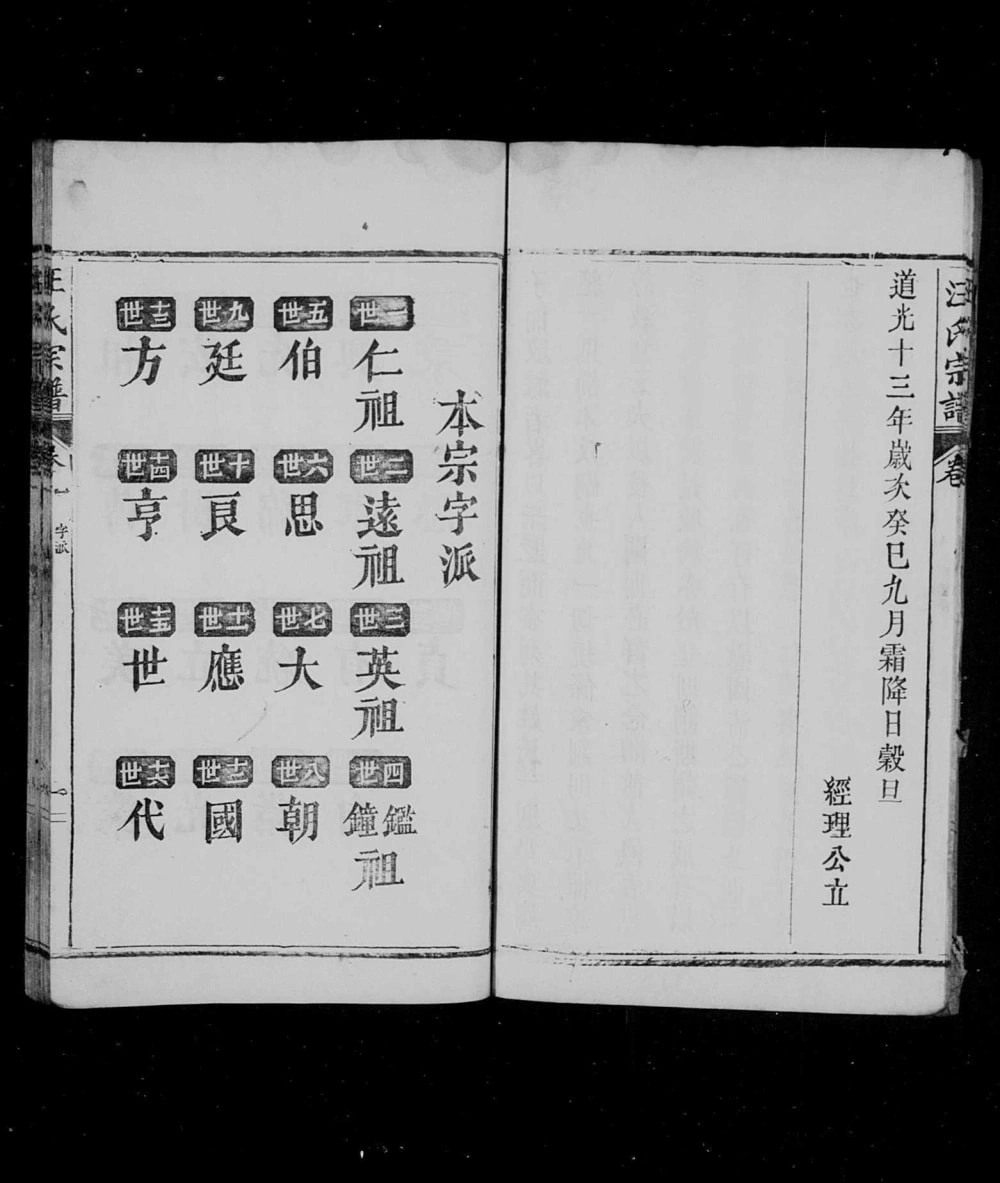 汪氏宗譜
卷
道光十三年歲次癸巳九月霜降日穀旦
經理公立
本宗字派
一世 仁祖 二世 遠祖 三世 英祖 四世 鑑鐘祖
五世 伯 六世 思 七世 大 八世 朝
九世 廷 十世 良 十一世 應 十二世 國
十三世 方 十四世 亨 十五世 世 十六世 代
汪氏宗譜 卷一 字派